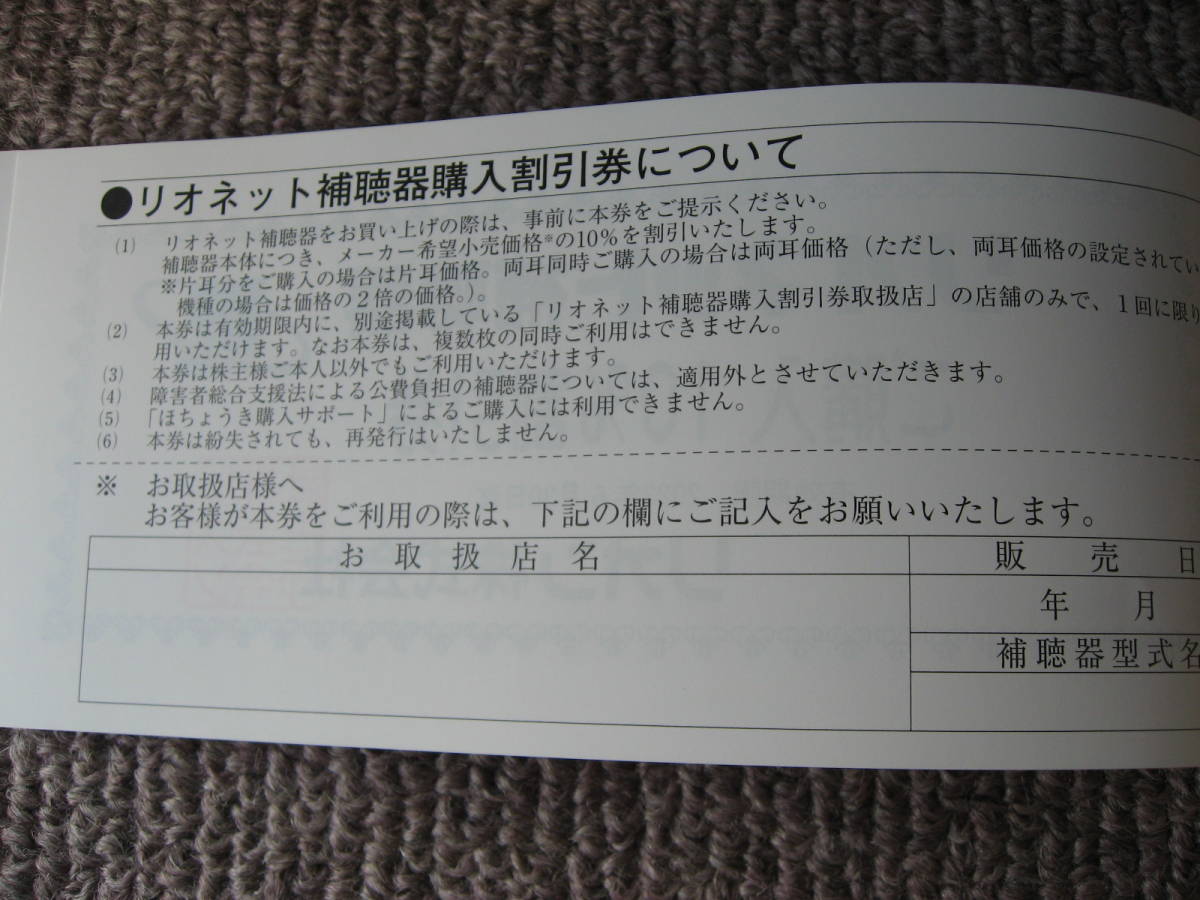 ●リオネット補聴器購入割引券について
(1) リオネット補聴器をお買い上げの際は、事前に本券をご提示ください。
補聴器本体につき、メーカー希望小売価格※の10％を割引いたします。
※片耳分をご購入の場合は片耳価格。両耳同時ご購入の場合は両耳価格（ただし、両耳価格の設定されてい
機種の場合は価格の２倍の価格。）。
(2) 本券は有効期限内に、別途掲載している「リオネット補聴器購入割引券取扱店」の店舗のみで、１回に限り
用いただけます。なお本券は、複数枚の同時ご利用はできません。
(3) 本券は株主様ご本人以外でもご利用いただけます。
(4) 障害者総合支援法による公費負担の補聴器については、適用外とさせていただきます。
(5) 「ほちょうき購入サポート」によるご購入には利用できません。
(6) 本券は紛失されても、再発行はいたしません。
※ お取扱店様へ
お客様が本券をご利用の際は、下記の欄にご記入をお願いいたします。
お取扱店名
販売日
年 月
補聴器型式名